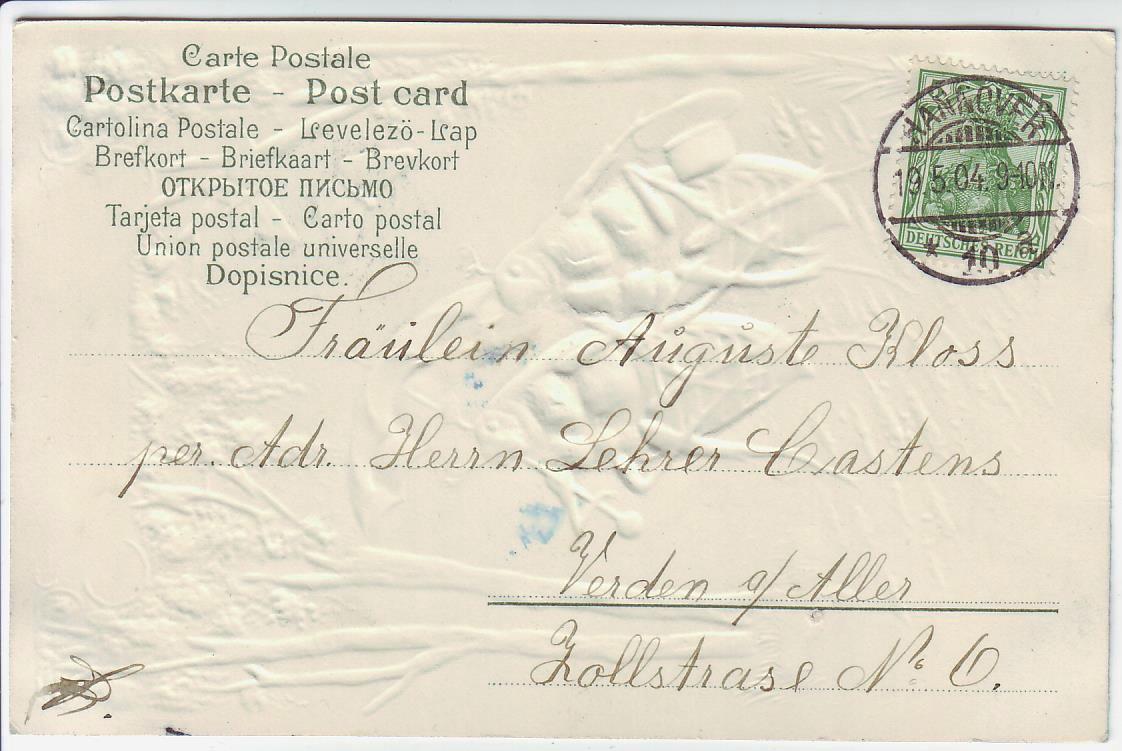 Carte Postale
Postkarte - Post card
Cartolina Postale - Levelezö-Lap
Brefkort - Briefkaart - Brevkort
ОТКРЫТОЕ ПИСЬМО
Tarjeta postal - Carto postal
Union postale universelle
Dopisnice.
5
HANNOVER
19.5.04. 9-10N.
* 10 a
DEUTSCHES REICH
Fräulein Auguste Kloss
per. Adr. Herrn Lehrer Castens
Verden a/ Aller
Zollstrase No. 6.